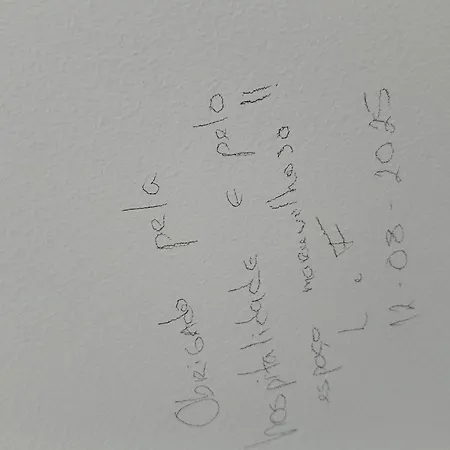 Obrigado pela
hospitalidade e pelo
espaço maravilhoso !!
L. F
12-08-2025